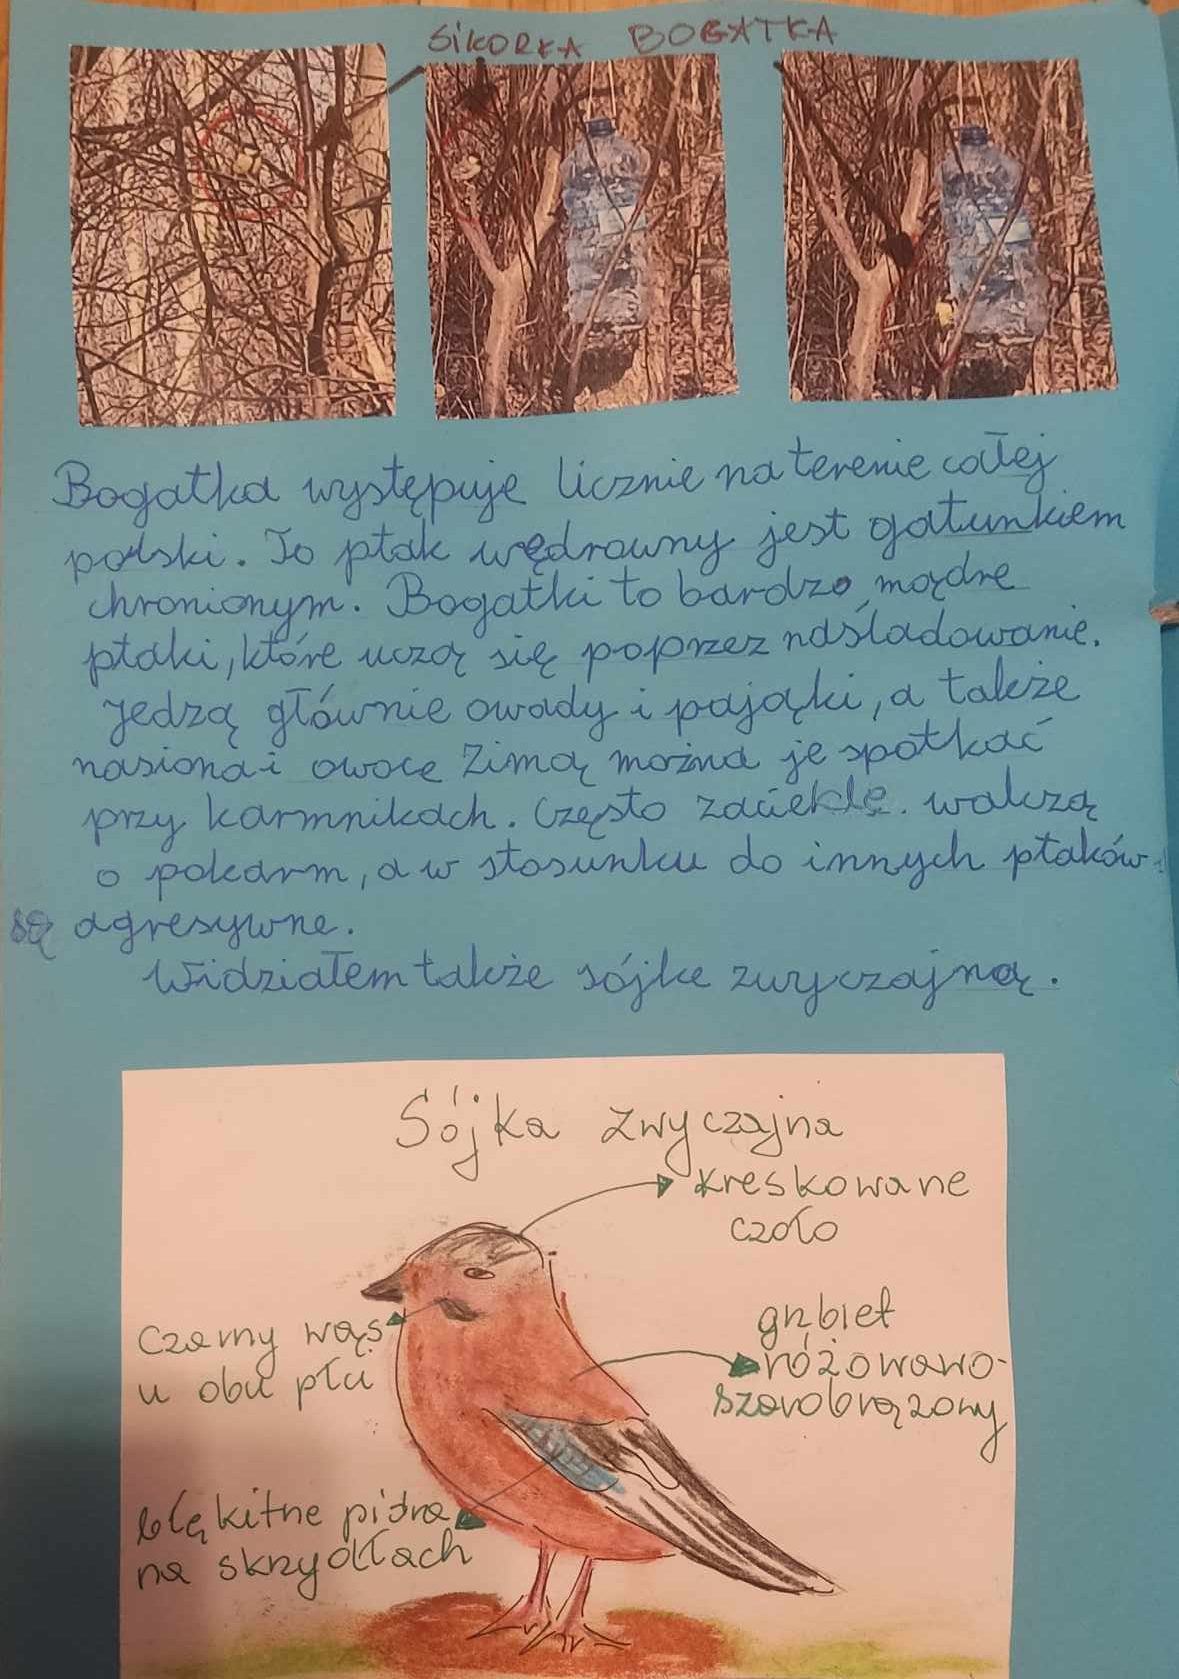 SIKORKA BOGATKA
Bogatka występuje licznie na terenie całej
polski. To ptak wędrowny jest gatunkiem
chronionym. Bogatki to bardzo mądre
ptaki, które uczą się poprzez naśladowanie.
Jedzą głównie owady i pająki, a także
nasiona i owoce Zimą można je spotkać
przy karmnikach. Często zaciekle. walczą
o pokarm, a w stosunku do innych ptaków
są agresywne.
Widziałem także sójke zwyczajną.
Sójka zwyczajna
kreskowane
czoło
Czarny wąs
u obu płci
grzbiet
różowawo-
szarobrązowy
błękitne pióra
na skrzydłach